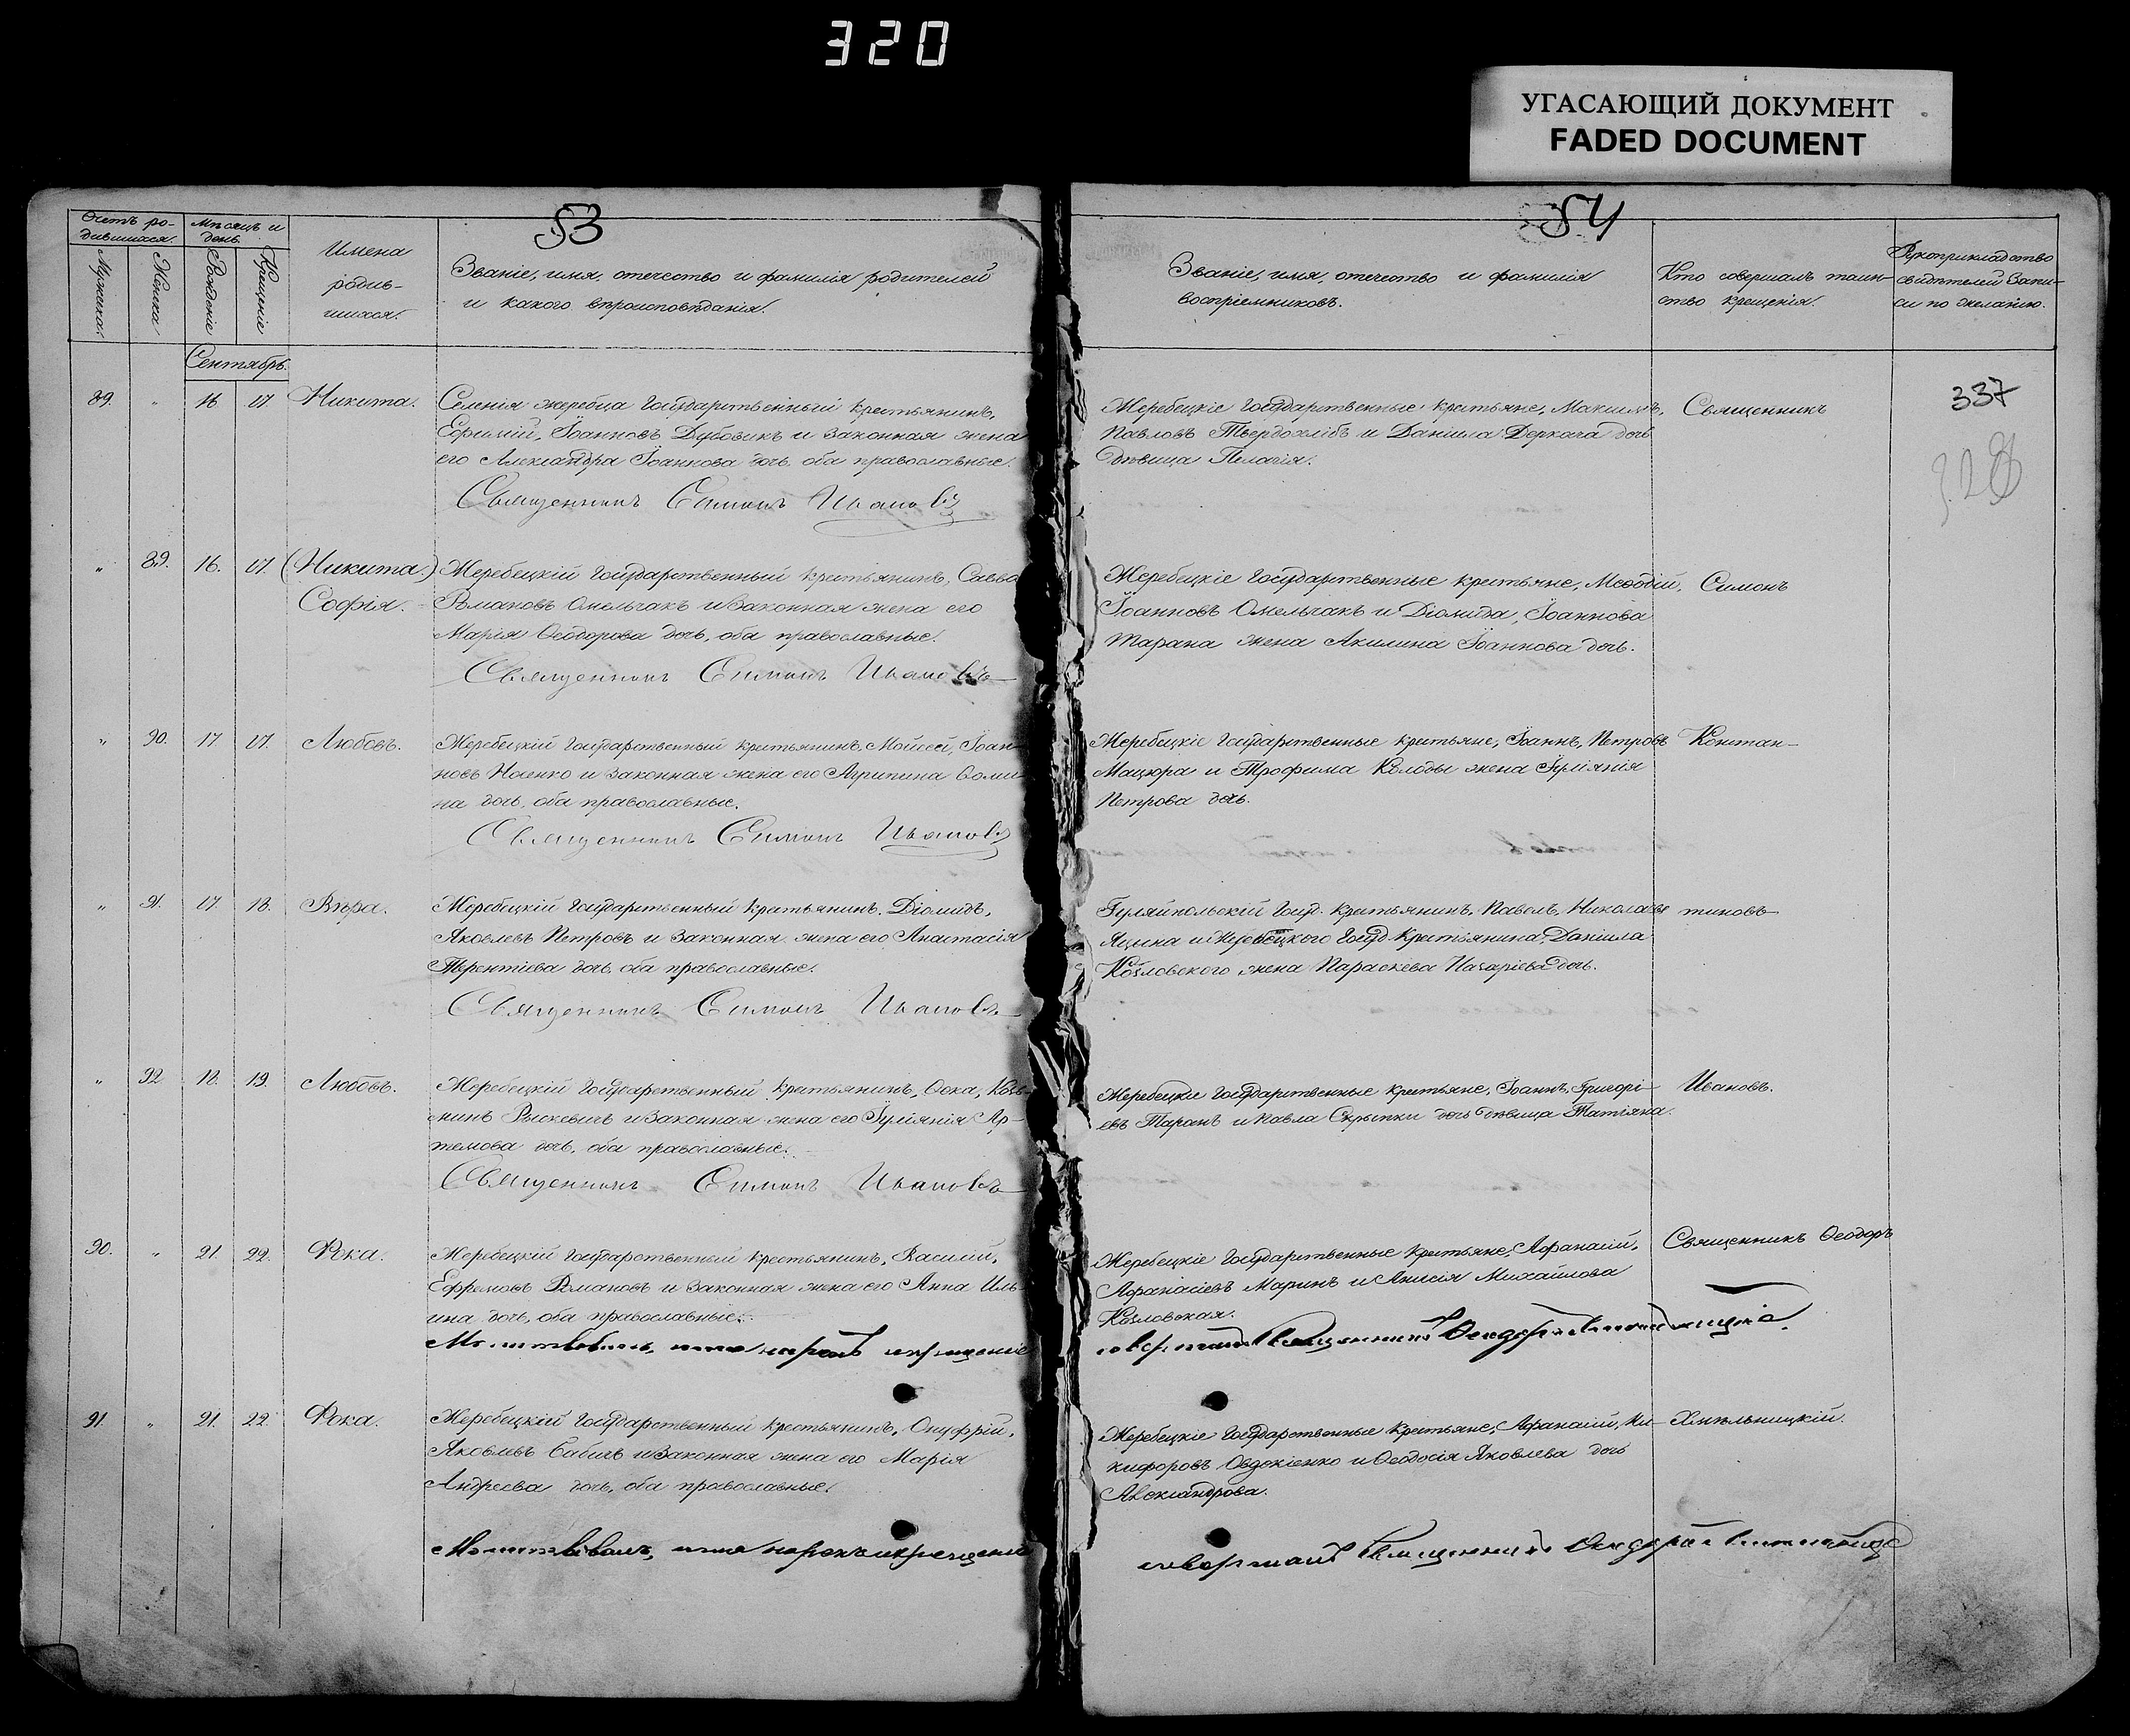 320
УГАСАЮЩИЙ ДОКУМЕНТ
FADED DOCUMENT
53
54
Счетъ ро-
дившихся.
Мѣсяцъ и
день.
Мужеска.
Женска
Рожденіе
Крещеніе
Имена
родив-
шихся.
Званіе, имя, отчество и фамилія родителей
и какого вѣроисповѣданія.
Званіе, имя, отчество и фамилія
воспріемниковъ.
Кто совершалъ таин-
ство крещенія.
Рукоприкладство
свидѣтелей запи-
си по желанію.
Сентябрь.
89. " 16 17. Никита.
Селенія Жеребца Государственный крестьянинъ,
Ефимій, Іоанновъ Дубовикъ и законная жена
его Александра Іоаннова дочь, оба православные.
Священникъ Симонъ Ивановъ
Жеребецкіе Государственные крестьяне, Максимъ,
Павловъ Твердохлѣбъ и Даніила Деркача дочь
дѣвица Пелагія.
Священникъ
337
328
" 89. 16. 17. (Никита.)
Софія.
Жеребецкій Государственный крестьянинъ, Савва
Романовъ Омельчакъ и законная жена его
Марія Ѳеодорова дочь, оба православные.
Священникъ Симонъ Ивановъ
Жеребецкіе Государственные крестьяне, Меѳодій,
Іоанновъ Омельчакъ и Діомида, Іоаннова
Тарана жена Акилина Іоаннова дочь.
Симонъ
" 90. 17 17. Любовь.
Жеребецкій Государственный крестьянинъ, Мойсей, Іоан-
новъ Носенко и законная жена его Агрипина Ѳоми-
на дочь, оба православные.
Священникъ Симонъ Ивановъ
Жеребецкіе Государственные крестьяне, Іоаннъ, Петровъ
Мацюра и Трофима Колоды жена Іуліянія
Петрова дочь.
Констан-
" 91. 17. 18. Вѣра.
Жеребецкій Государственный крестьянинъ, Діомидъ,
Яковлевъ Петровъ и законная жена его Анастасія
Терентіева дочь, оба православные.
Священникъ Симонъ Ивановъ
Гуляйпольскій Госуд. крестьянинъ, Павелъ, Николаевъ
Яцына и Жеребецкого Госуд. крестьянина, Даніила
Козловского жена Параскева Назаріева дочь.
тиновъ
" 92 18. 19. Любовь.
Жеребецкій Государственный крестьянинъ, Ѳока, Козь-
минъ Рыскевичъ и законная жена его Іуліянія Ар-
темова дочь, оба православные.
Священникъ Симонъ Ивановъ
Жеребецкіе Государственные крестьяне, Іоаннъ, Григорі-
евъ Таранъ и Павла Скрыпки дочь дѣвица Татіяна.
Ивановъ.
90. " 21. 22. Фока.
Жеребецкій Государственный крестьянинъ, Василій,
Ефремовъ Романовъ и законная жена его Анна Иль-
ина дочь, оба православные.
Молитвовалъ, имя нарекъ и крещеніе
Жеребецкіе Государственные крестьяне, Афанасій,
Афанасіевъ Маринъ и Анисія Михайлова
Козловская.
совершалъ Священникъ Ѳеодоръ
Священникъ Ѳеодоръ
91. " 21. 22. Фока.
Жеребецкій Государственный крестьянинъ, Онуфрій,
Яковлевъ Бабичъ и законная жена его Марія
Андреева дочь, оба православные.
Молитвовалъ, имя нарекъ и крещеніе
Жеребецкіе Государственные крестьяне, Афанасій, Ни-
кифоровъ Овдокіенко и Ѳеодосія Яковлева дочь
Александрова.
совершалъ Священникъ Ѳеодоръ
Хмѣльницкій.